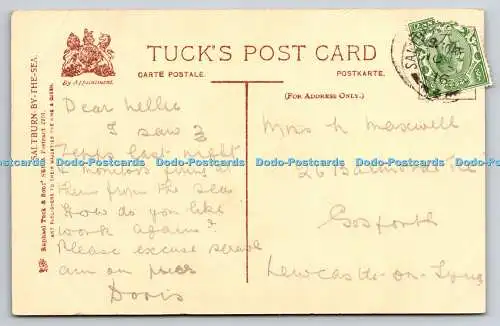 TUCK'S POST CARD
By Appointment.
CARTE POSTALE.
POSTKARTE.
(FOR ADDRESS ONLY.)
SALTBURN-BY-THE-SEA.
Raphael Tuck & Sons'
ART PUBLISHERS TO THEIR MAJESTIES THE KING & QUEEN.
Dear Nellie
I saw 3
Zepps last night
& monitors firing at
them from the sea
How do you like
work again?
Please excuse scrawl
am on
Doris
Miss N Maxwell
26 Balmoral Ter
Gosforth
Newcastle-on-Tyne
Dodo-Postcards Dodo-Postcards Dodo-Postcards Dodo-Postcards Dodo-Postcards